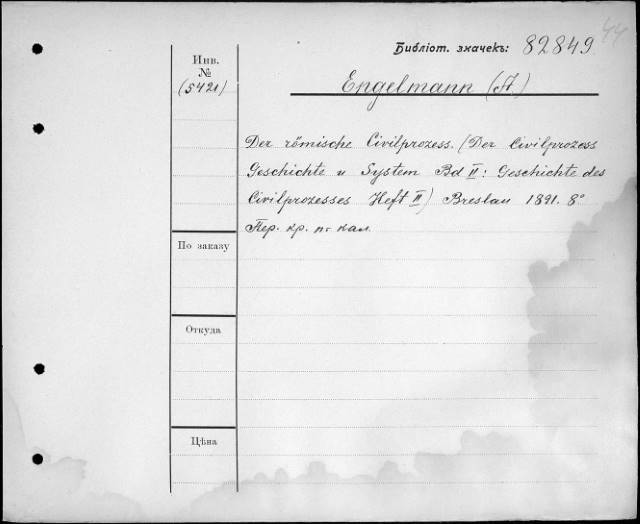 44
Библіот. значекъ: 82849
Инв.
№
(5421)
Engelmann (A.)
Der römische Civilprozess. (Der Civilprozess
Geschichte u System Bd II: Geschichte des
Civilprozesses Heft II) Breslau 1891. 8°
Пер. кр. п. кал.
По заказу
Откуда
Цѣна